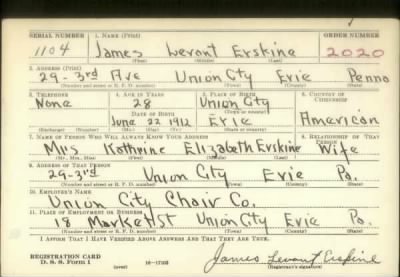 SERIAL NUMBER 1. NAME (Print) ORDER NUMBER
1104 James Levant Erskine 2020
(First) (Middle) (Last)
2. ADDRESS (Print)
29-3rd Ave Union City Erie Penna
(Number and street or R. F. D. number) (Town) (County) (State)
3. TELEPHONE 4. AGE IN YEARS 5. PLACE OF BIRTH 6. COUNTRY OF CITIZENSHIP
None 28 Union City
DATE OF BIRTH (Town or county)
June 22 1912 Erie American
(Exchange) (Number) (Mo.) (Day) (Yr.) (State or country)
7. NAME OF PERSON WHO WILL ALWAYS KNOW YOUR ADDRESS 8. RELATIONSHIP OF THAT PERSON
Mrs Kathrine Elizabeth Erskine Wife
(Mr., Mrs., Miss) (First) (Middle) (Last)
9. ADDRESS OF THAT PERSON
29-3rd Union City Erie Pa.
(Number and street or R. F. D. number) (Town) (County) (State)
10. EMPLOYER'S NAME
Union City Chair Co.
11. PLACE OF EMPLOYMENT OR BUSINESS
18 Market St Union City Erie Pa.
(Number and street or R. F. D. number) (Town) (County) (State)
I AFFIRM THAT I HAVE VERIFIED ABOVE ANSWERS AND THAT THEY ARE TRUE.
REGISTRATION CARD
D. S. S. Form 1 (over) James Levant Erskine
(Registrant's signature)